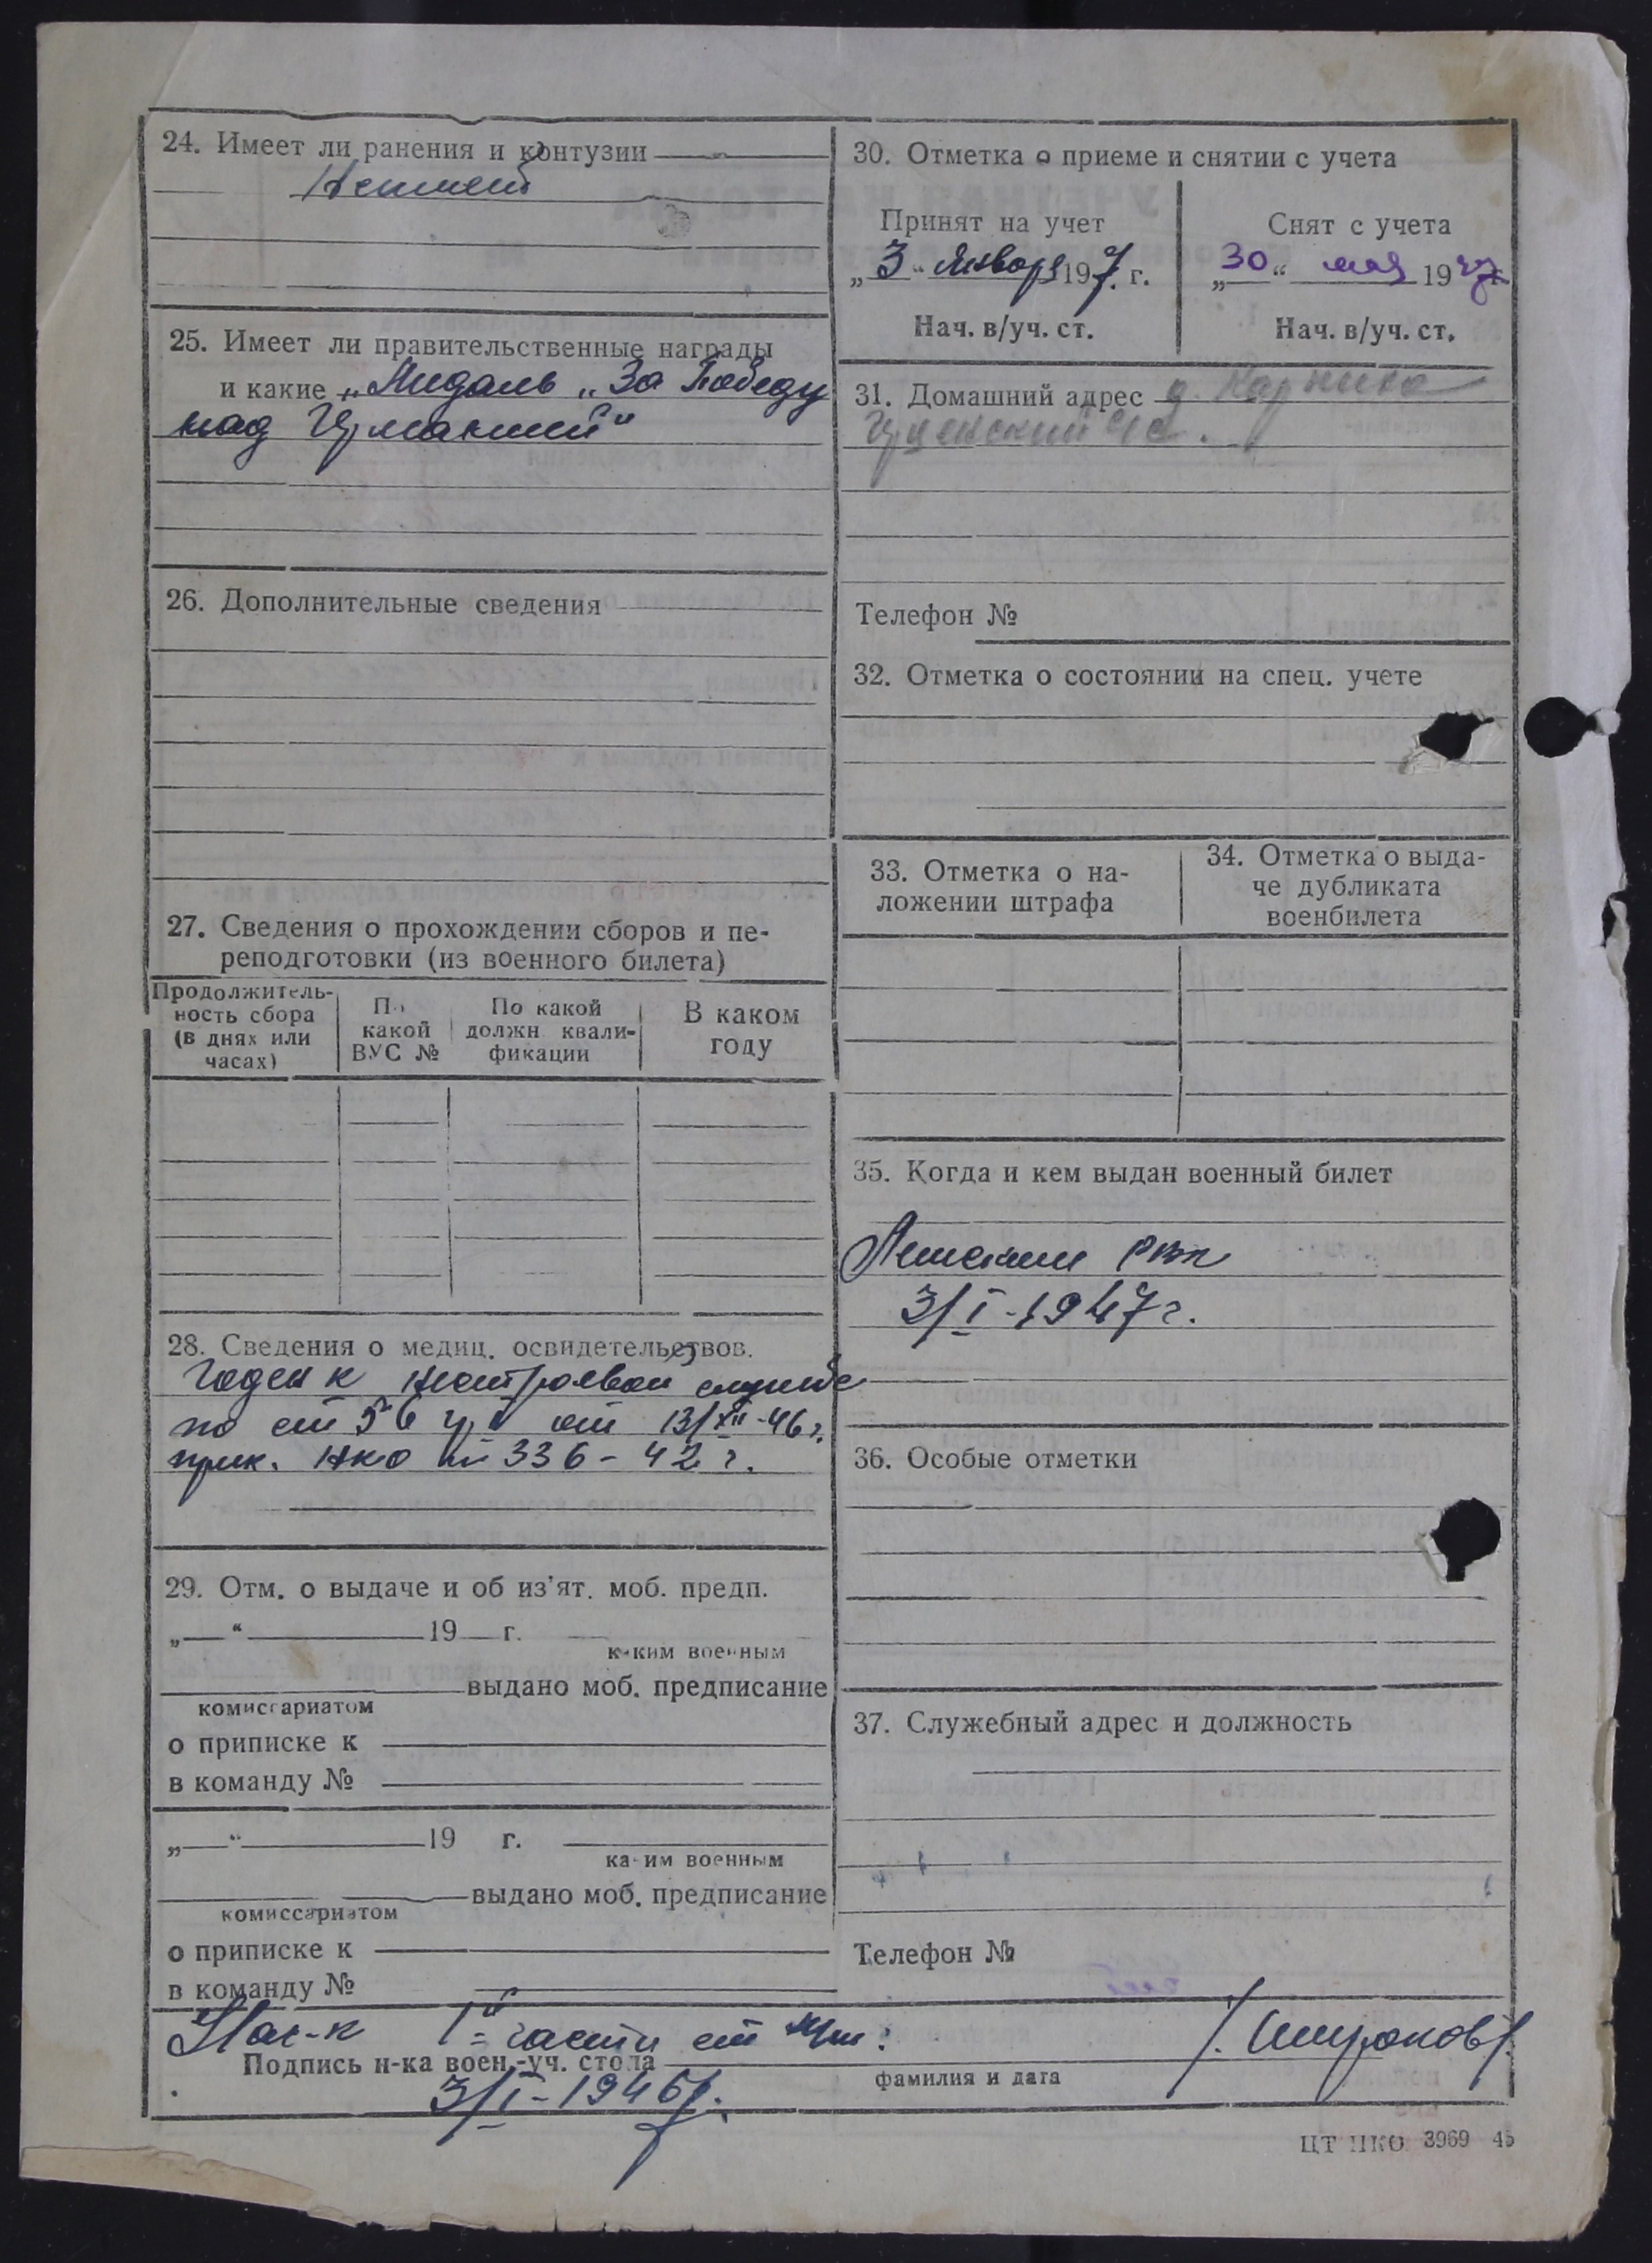 24. Имеет ли ранения и контузии
Не имеет
25. Имеет ли правительственные награды
и какие „Медаль „За Победу
над Германией“
26. Дополнительные сведения
27. Сведения о прохождении сборов и пе-
реподготовки (из военного билета)
Продолжитель-
ность сбора
(в днях или
часах)
По
какой
ВУС №
По какой
должн. квали-
фикации
В каком
году
28. Сведения о медиц. освидетельствов.
Годен к нестроевой службе
по ст 56 гр I от 13/XII-46 г.
прик. НКО № 336-42 г.
29. Отм. о выдаче и об из'ят. моб. предп.
„ “ 19 г.
каким военным
выдано моб. предписание
комиссариатом
о приписке к
в команду №
„ “ 19 г.
каким военным
выдано моб. предписание
комиссариатом
о приписке к
в команду №
30. Отметка о приеме и снятии с учета
Принят на учет
„3“ Января 197. г.
Нач. в/уч. ст.
Снят с учета
„30“ мая 1947г.
Нач. в/уч. ст.
31. Домашний адрес д.
с/с.
Телефон №
32. Отметка о состоянии на спец. учете
33. Отметка о на-
ложении штрафа
34. Отметка о выда-
че дубликата
военбилета
35. Когда и кем выдан военный билет
РВК
3/I-1947г.
36. Особые отметки
37. Служебный адрес и должность
Телефон №
Нач-к 1й части ст
Подпись н-ка воен.-уч. стола
фамилия и дата
3/I-1946
ЦТ НКО 3969 45